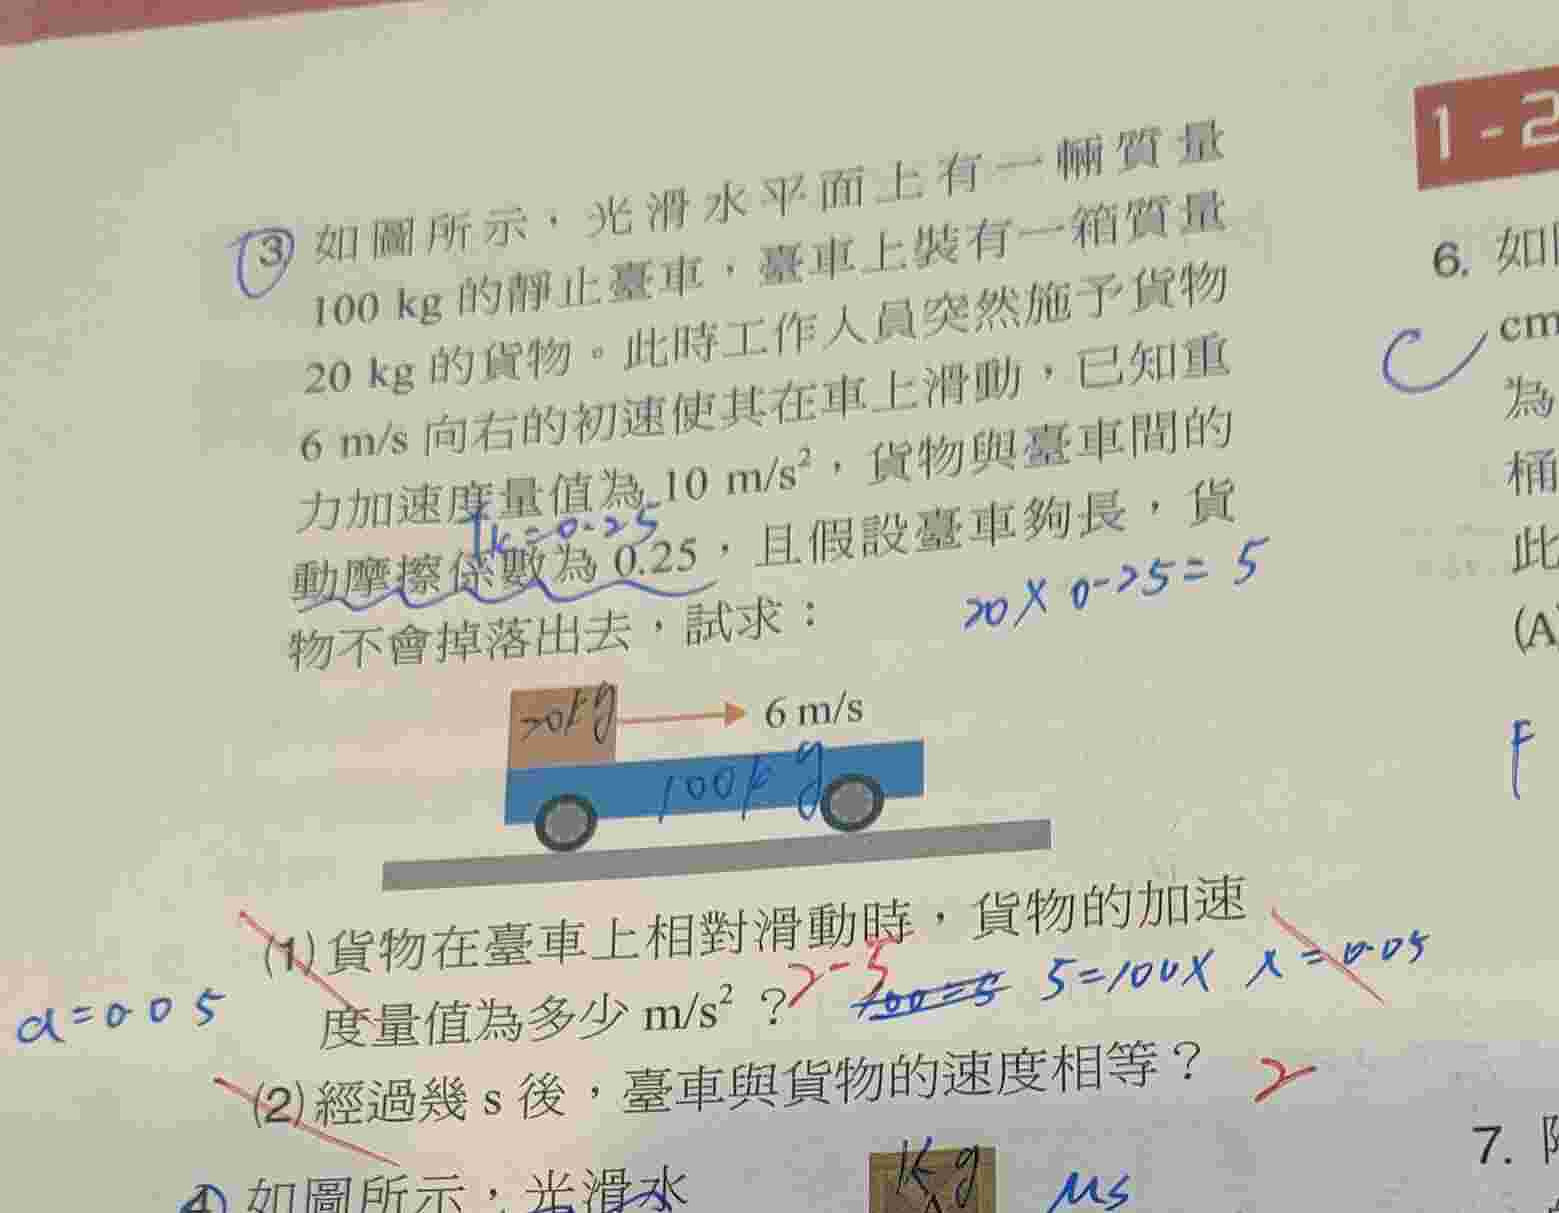 1-2
3 如圖所示，光滑水平面上有一輛質量
100 kg 的靜止臺車，臺車上裝有一箱質量
20 kg 的貨物。此時工作人員突然施予貨物
6 m/s 向右的初速使其在車上滑動，已知重
力加速度量值為 10 m/s²，貨物與臺車間的
k=0.25
動摩擦係數為 0.25，且假設臺車夠長，貨
物不會掉落出去，試求：
20×0.25=5
20kg
6 m/s
100kg
(1)貨物在臺車上相對滑動時，貨物的加速
度量值為多少 m/s²？
2.5
100=5
5=100x x=0.05
a=0.05
(2)經過幾 s 後，臺車與貨物的速度相等？
2
4 如圖所示，光滑水
kg
μs
6. 如
cm
為
桶
此
(A
F
7.